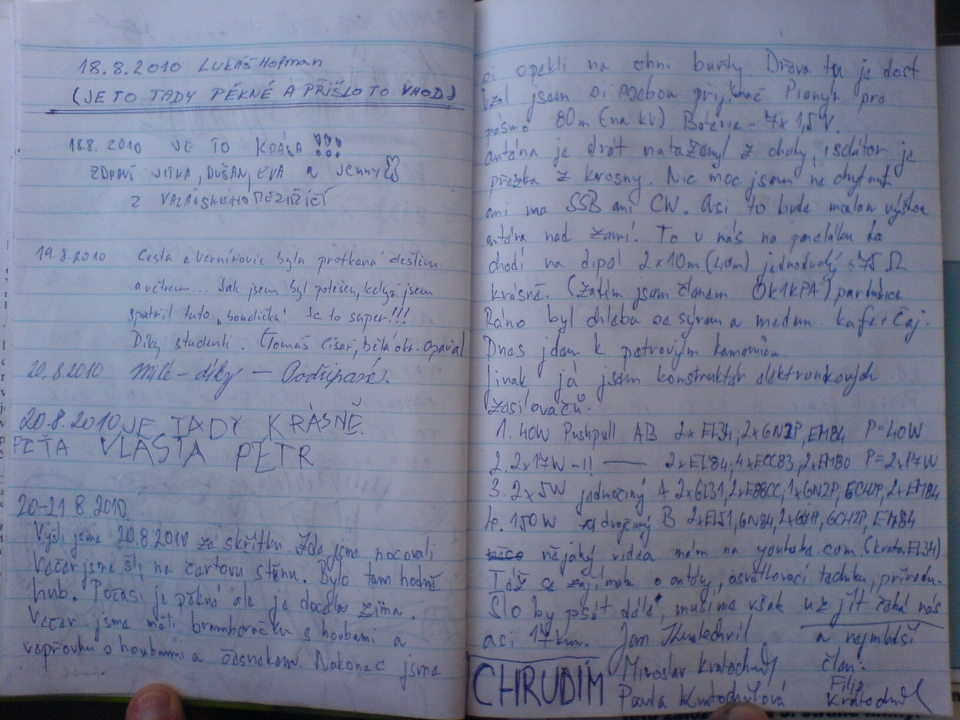 18.8.2010 LUKÁŠ HOFMAN
(JE TO TADY PĚKNÉ A PŘIŠLO TO VHOD)
18.8.2010 JE TO KRÁSA !!!
ZDRAVÍ JITKA, DUŠAN, EVA a JENNY
Z VALAŠSKÉHO MEZIŘÍČÍ
19.8.2010 Cesta z Vernířovic byla protkaná deštěm
a větrem... Jak jsem byl potěšen, když jsem
spatřil tuto "boudičku". Je to super!!!
Díky studenti. (Tomáš Císař, okr. Opava)
20.8.2010 Milé - díky —
20.8.2010 JE TADY KRÁSNĚ.
PEŤA VLASTA PETR
20-21 8.2010.
Vyšli jsme 20.8.2010 ze skřítku. Zde jsme nocovali
Večer jsme šli na čertovu stěnu. Bylo tam hodně
hub. Počasí je pěkné ale je docela zima.
Večer jsme měli bramboračku s houbami a
vepřovku s houbami a česnekem. Nakonec jsme
si opekli na ohni buřty. Dřeva tu je dost
Vzal jsem si sebou přijímač Pionýr pro
pásmo 80m (na KV) Baterie - 7x 1,5V.
anténa je drát natažený z chaty, isolátor je
přezka z krosny. Nic moc jsem ne chytnul
ani na SSB ani CW. Asi to bude malou výškou
antény nad zemí. To u nás na paneláku to
chodí na dipól 2x10m (40m) jednoduchý 75 Ω
krásně. (zatím jsem členem OK1KPA) pardubice
Ráno byl chleba se sýrem a medem. kafe čaj.
Dnes jdem k petrovým kamenům
Jinak já jsem konstruktér elektronkových
zesilovačů.
1. 40W Pushpull AB 2x EL34, 2x6N2P, EM84 P=40W
2. 2x17W -11- 2xEL84, 4xECC83, 2xEM80 P=2x17W
3. 2x5W jednočinný A 2x6L31, 2xE88CC, 1x6N2P, 6CH2P, 2xEM84
4. 150W dvojčinný B 2xEL51, 6CH2P, EM84
nějaký videa mám na youtube.com (krataEL34)
Též se zajímám o antény, osvětlovací techniku, přírodu.
Šlo by psát dále, musíme však už jít čeká nás
asi 17km. Jan Kratochvíl a nejmladší
CHRUDIM Miroslav Kratochvíl člen:
Pavla Kratochvílová Filip Kratochvíl